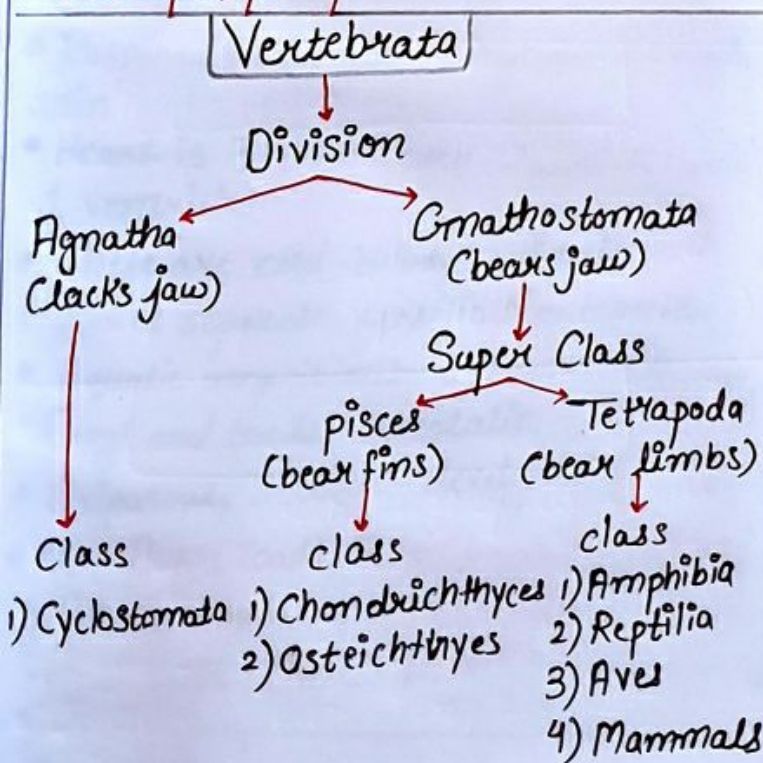 Vertebrata
Division
Agnatha
(lacks jaw)
Gnathostomata
(bears jaw)
Super Class
pisces
(bear fins)
Tetrapoda
(bear limbs)
Class
1) Cyclostomata
class
1) Chondrichthyces
2) Osteichthyes
class
1) Amphibia
2) Reptilia
3) Aves
4) Mammals